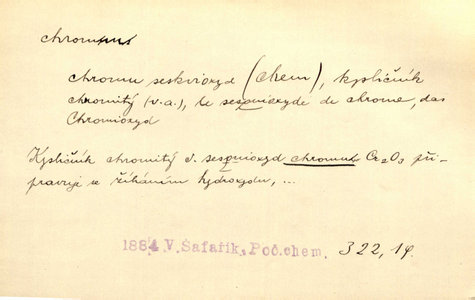 chromum
chromu seskvioxyd (chem), kysličník
chromitý (v.a.), le sesquioxyde de chrome, das
Chromioxyd
Kysličník chromitý č. sesquioxyd chromu Cr2O3 při-
pravuje se žíháním hydroxydu, ...
1884 V. Šafařík, Poč. chem. 322, 14.